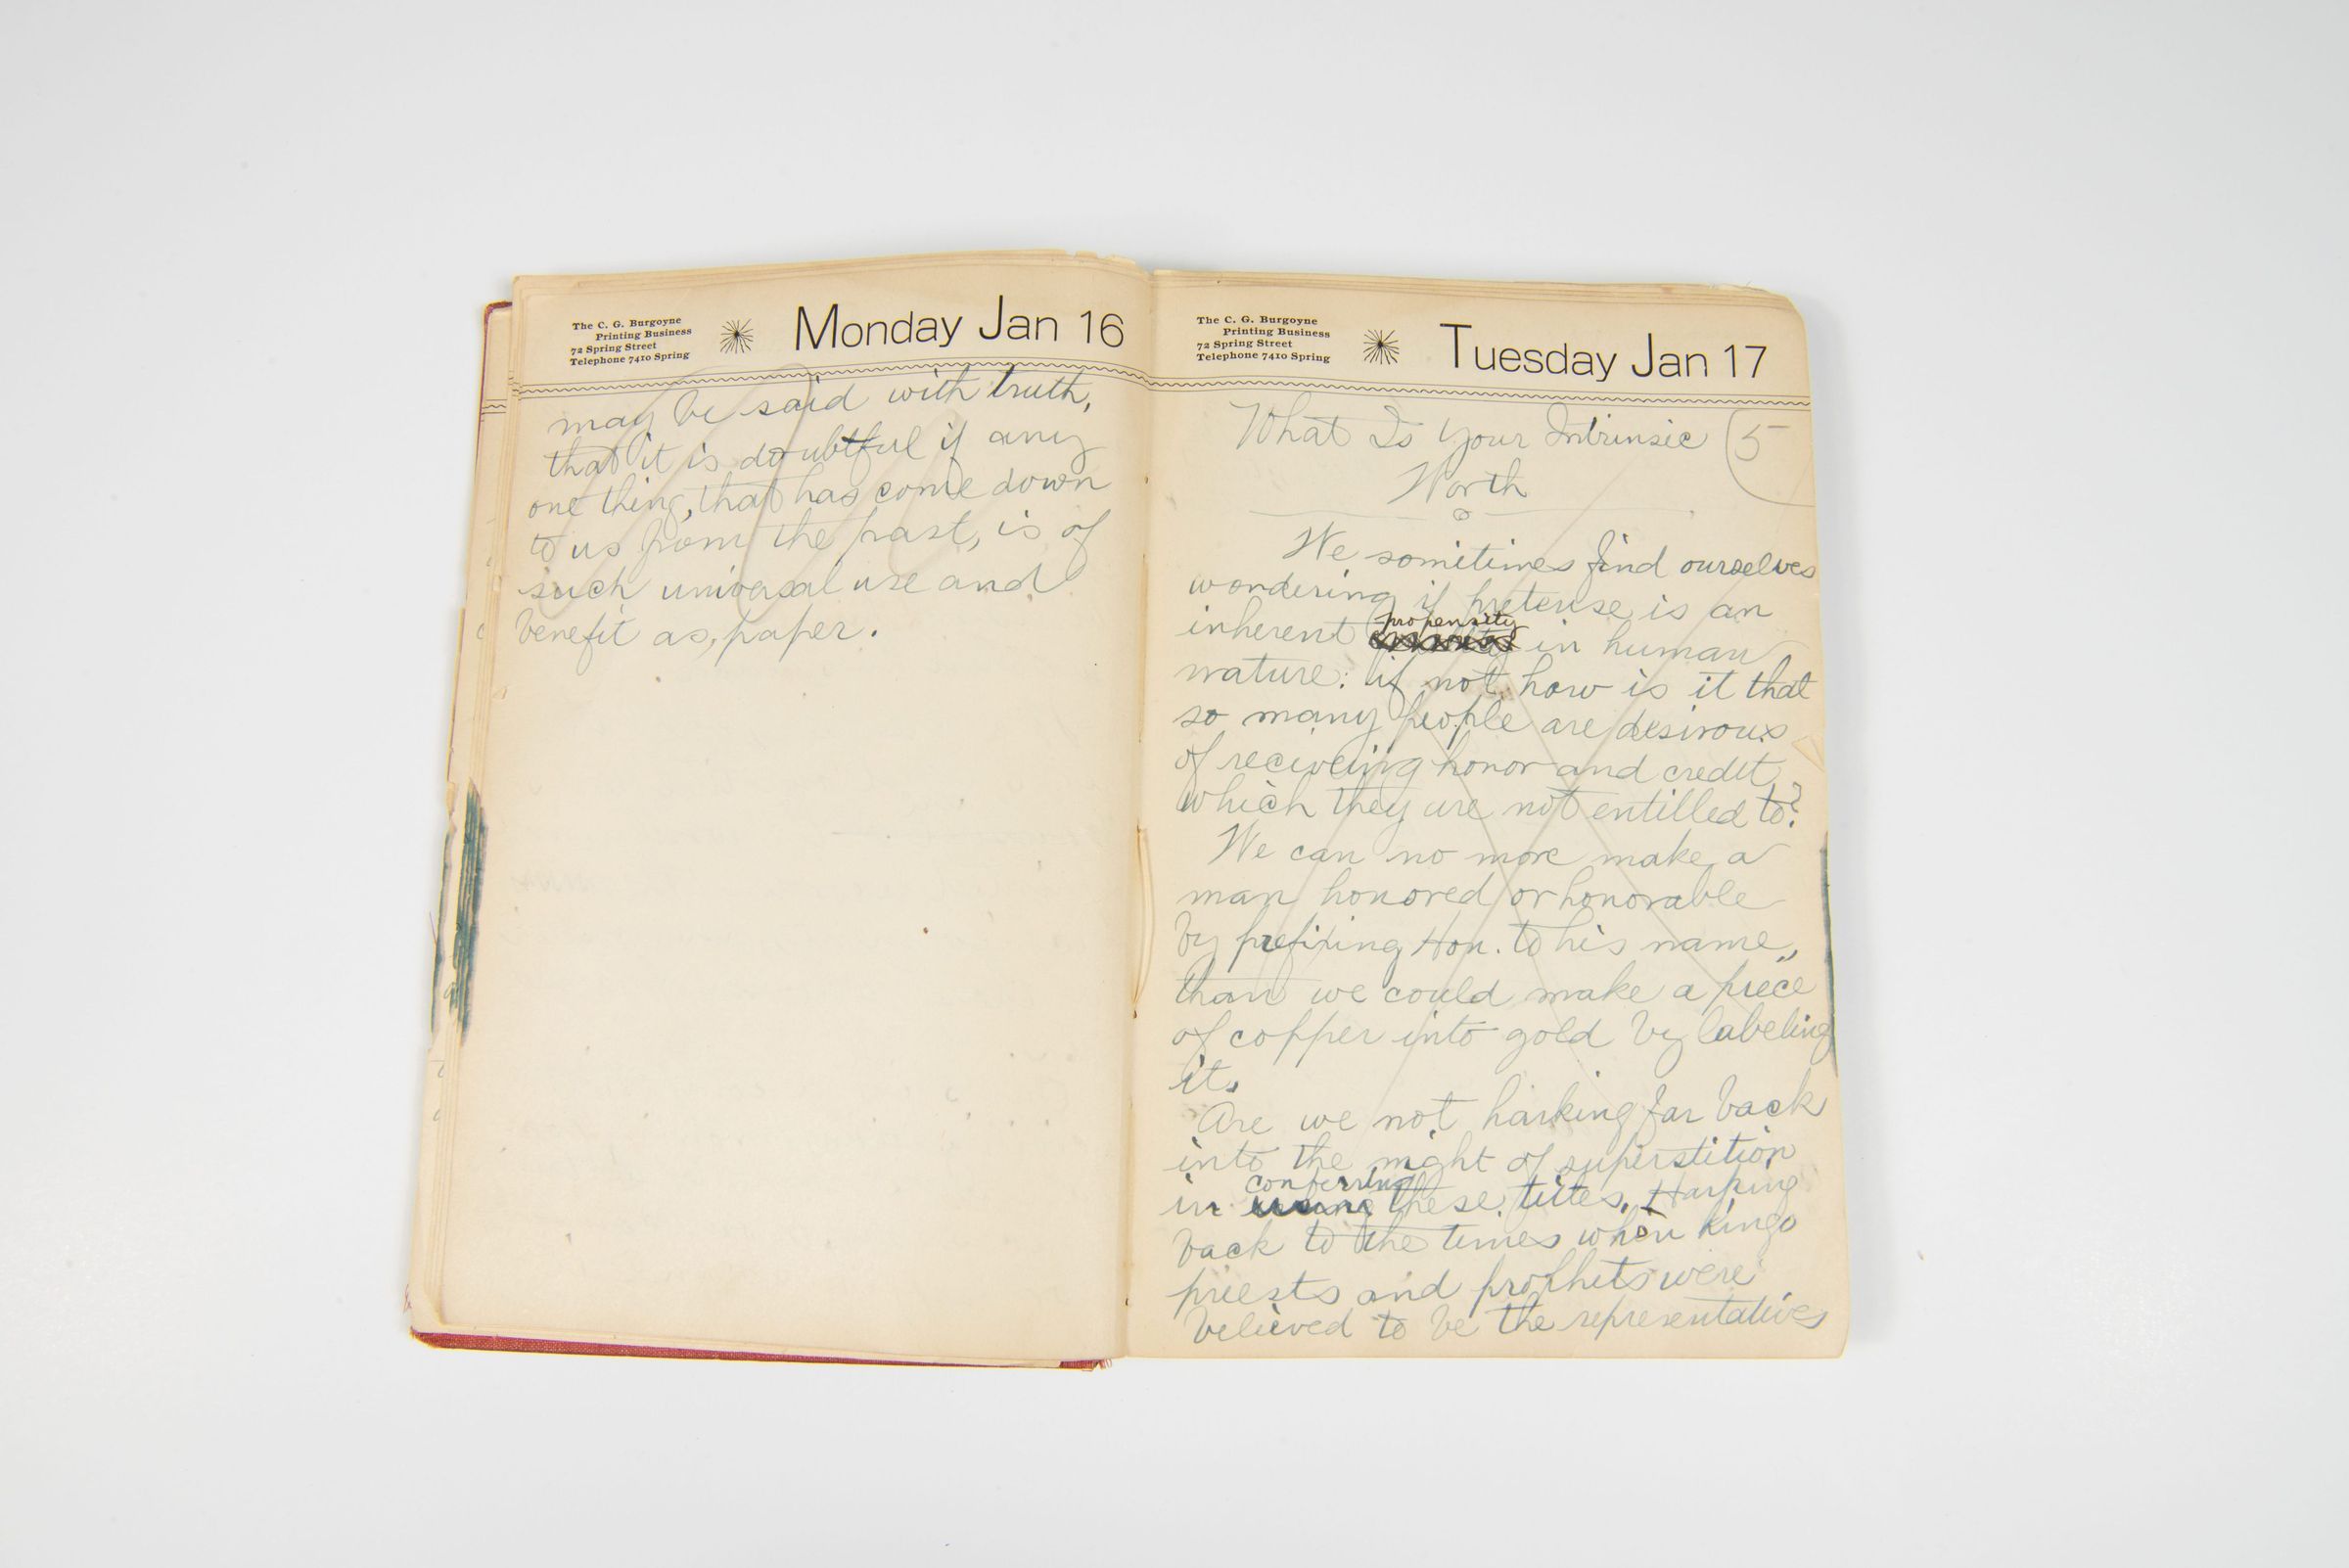 The C. G. Burgoyne
Printing Business
72 Spring Street
Telephone 7410 Spring
Monday Jan 16
may be said with truth,
that it is doubtful if any
one thing, that has come down
to us from the past, is of
such universal use and
benefit as, paper.
The C. G. Burgoyne
Printing Business
72 Spring Street
Telephone 7410 Spring
Tuesday Jan 17
What Is Your Intrinsic
5
Worth
We sometimes find ourselves
wondering if pretense is an
propensity
inherent in human
nature: if not, how is it that
so many people are desirous
of receiveing honor and credit
which they are not entilled to?
We can no more make a
man honored or honorable
by prefixing Hon. to his name,,
than we could make a piece
of copper into gold by labeling
it.
Are we not harking far back
into the night of superstition
conferring
in using these titles. Harping
back to the times when kings
priests and prophets were
believed to be the representatives